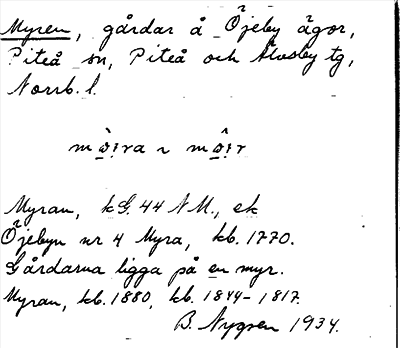 Myren, gårdar å Öjeby ägor,
Piteå sn, Piteå och Älvsby tg,
Norrb. l.
Myran, kG. 44 NM., ek
Öjebyn nr 4 Myra, kb. 1770.
Gårdarna ligga på en myr.
Myran, kb. 1880, kb. 1844-1817.
B. Nygren 1934.